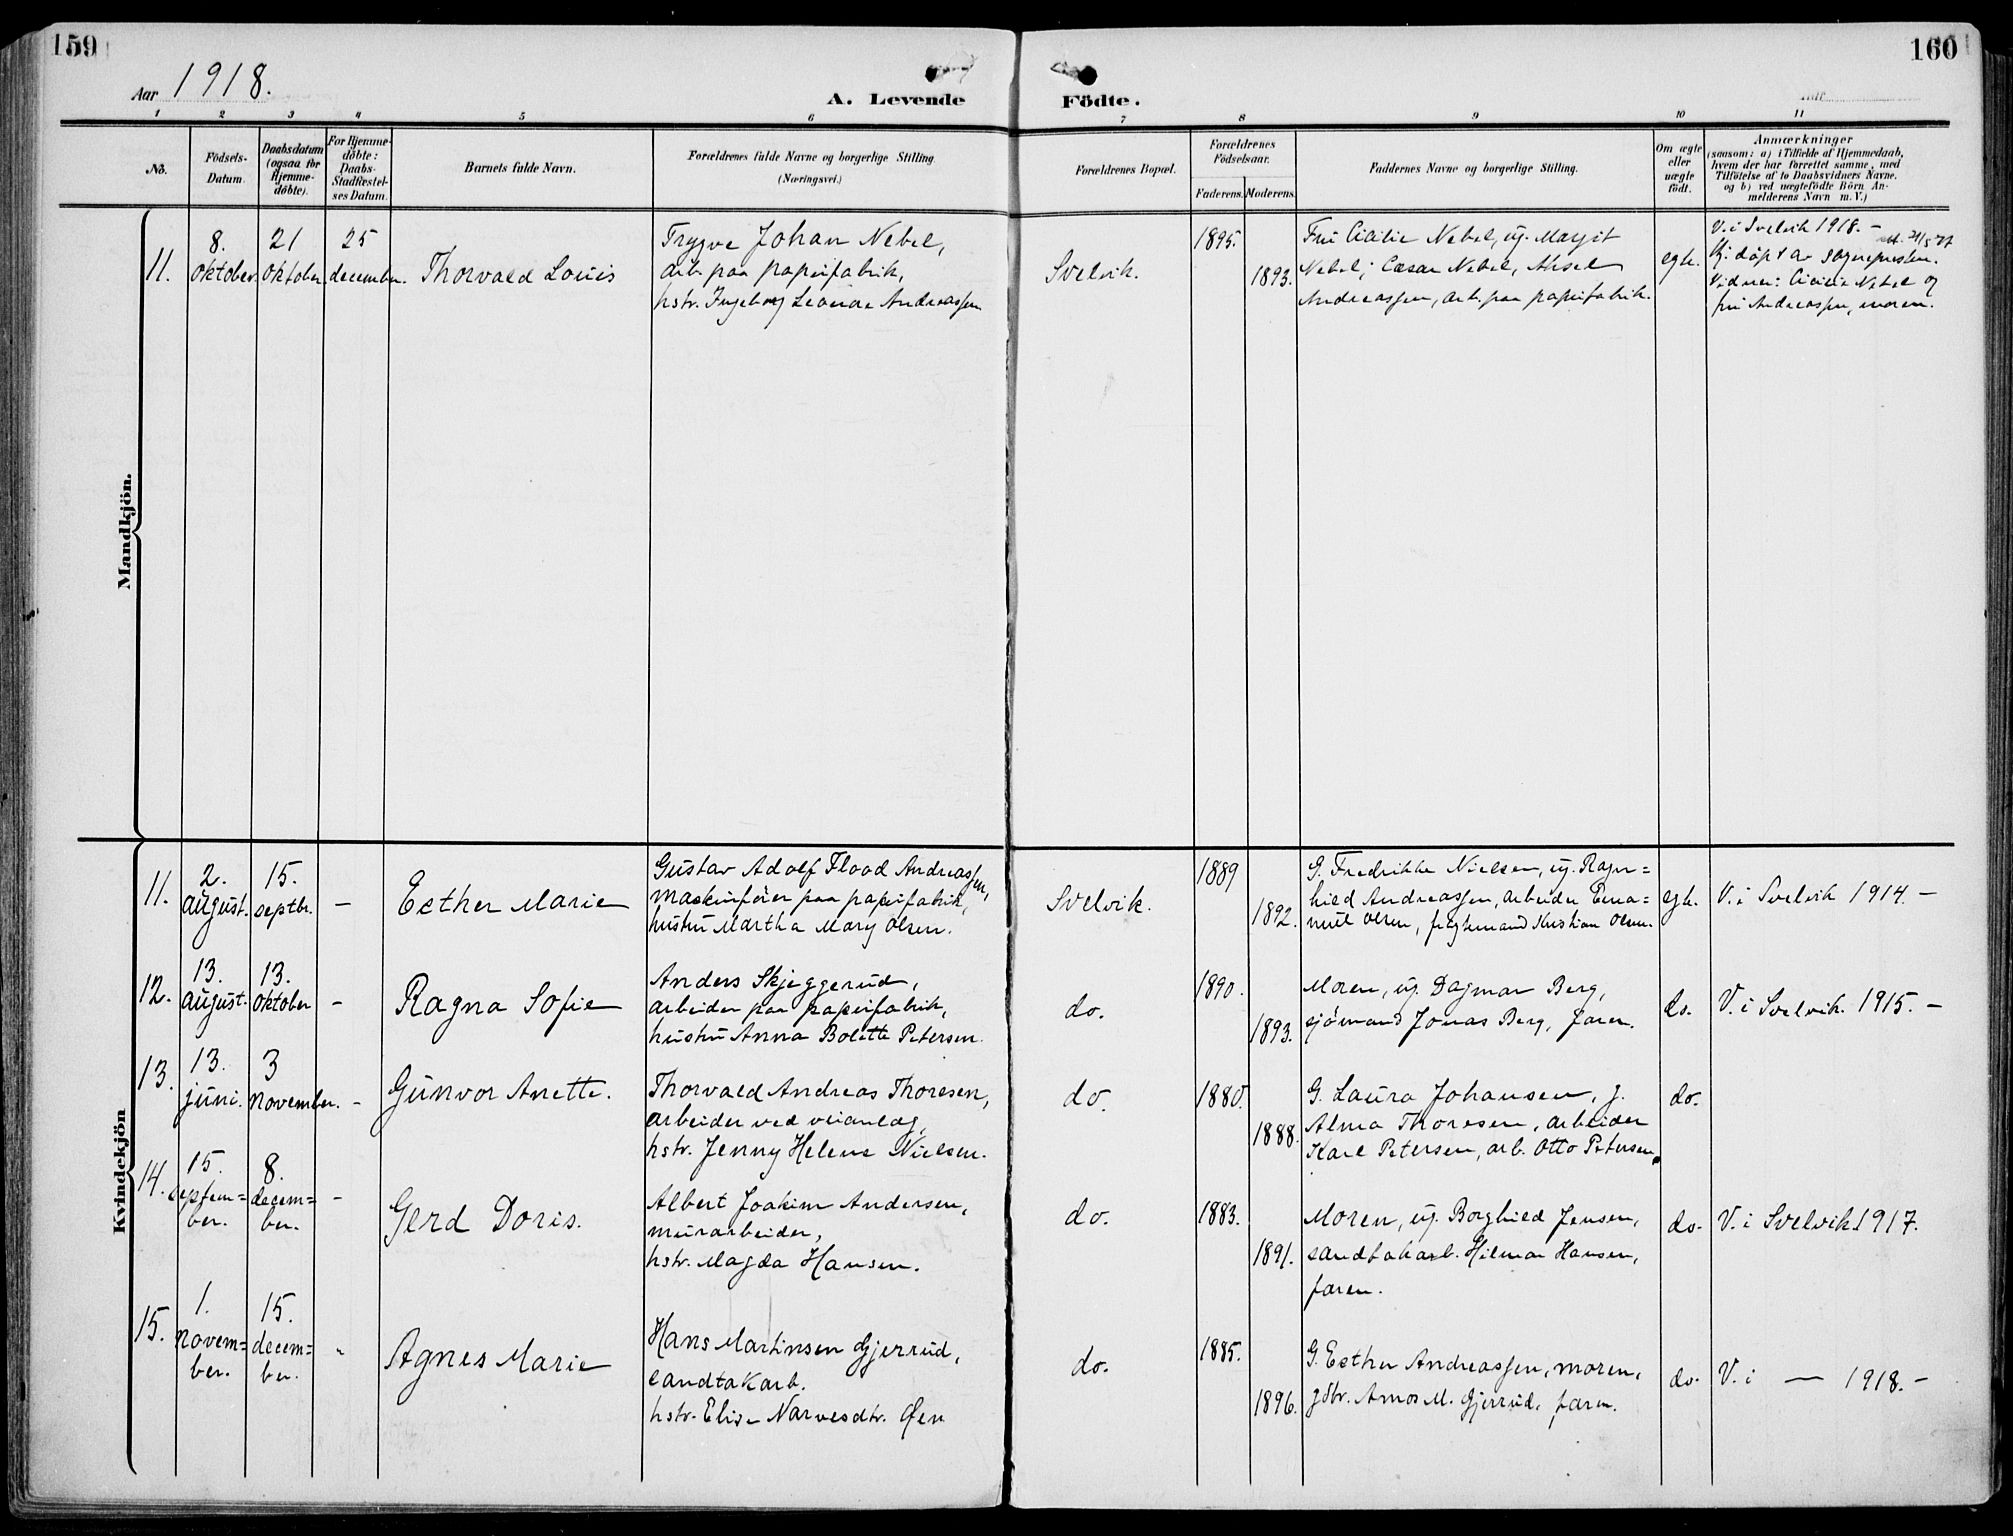 159
160
Aar 1918.
A. Levende Födte.
1 2 3 4 5 6 7 8 9 10 11
No.
Födsels-
Datum.
Daabsdatum
(ogsaa for
Hjemme-
döbte).
For Hjemme-
döbte:
Daabs-
Stadfæstel-
ses Datum.
Barnets fulde Navn.
Forældrenes fulde Navne og borgerlige Stilling
(Næringsvei.)
Forældrenes Bopæl.
Forældrenes
Födselsaar.
Faderens. Moderens.
Faddernes Navne og borgerlige Stilling.
Om ægte
eller
uægte
födt.
Anmærkninger
(saasom: a) i Tilfælde af Hjemmedaab,
hvem der har forrettet samme, med
Tilföielse af to Daabsvidners Navne,
og b) ved uægtefödte Börn An-
melderens Navn m. V.)
Mandkjön.
11.
8.
oktober.
21
oktober.
25
december.
Thorvald Louis
Trygve Johan Nebel,
arb. paa papirfabrik,
hstr. Ingeborg Leonora Andreassen
Svelvik.
1895.
1893.
Fru Cicilie Nebel, ug. Margit
Nebel; Cæsar Nebel, Aksel
Andreassen, arb. paa papirfabrik.
egte.
V. i Svelvik 1918. –
Hj. döpt av sogneprosten.
Vidner: Cicilie Nebel og
fru Andreassen, moren.
Kvindekjön
11.
2.
august.
15.
septbr.
–
Esther Marie
Gustav Adolf Flood Andreassen,
maskinfører paa papirfabrik,
hustru Martha Mary Olsen.
Svelvik.
1889
1892.
G. Fredrikke Nielsen, ug. Ragn=
hild Andreassen, arbeider Ema=
nuel Olsen, fyrman Kristian Olsen.
egte.
V. i Svelvik 1914. –
12.
13.
august.
13.
oktober
–
Ragna Sofie
Anders Skjeggerud,
arbeider paa papirfabrik,
hustru Anna Bolette Petersen.
do.
1890.
1893.
Moren, ug. Dagmar Berg,
sjömand Jonas Berg, faren.
do.
V. i Svelvik. 1915. –
13.
13.
juni.
3
november.
–
Gunvor Anette.
Thorvald Andreas Thoresen,
arbeider ved veianlæg,
hstr. Jenny Helene Nielsen.
do.
1880.
1888.
G. Laura Johansen, g.
Alma Thoresen, arbeider
Karl Petersen, arb. Otto Petersen.
do.
14.
15.
septem=
ber.
8.
decem=
ber.
–
Gerd Doris.
Albert Joakim Andersen,
murarbeider,
hstr. Magda Hansen.
do.
1883.
1891.
Moren, ug. Borghild Jensen,
sandtakarb. Hilmar Hansen,
faren.
do.
V. i Svelvik 1917.
15.
1.
novem=
ber.
15.
decem=
ber.
"
Agnes Marie
Hans Martinsen Gjerrud,
sandtakarb.
hstr. Elise Narvesdtr. Øen
do.
1885.
1896.
G. Esther Andreassen, moren,
gdbr. Amos M. Gjerrud, faren.
do.
V. i — 1918. –